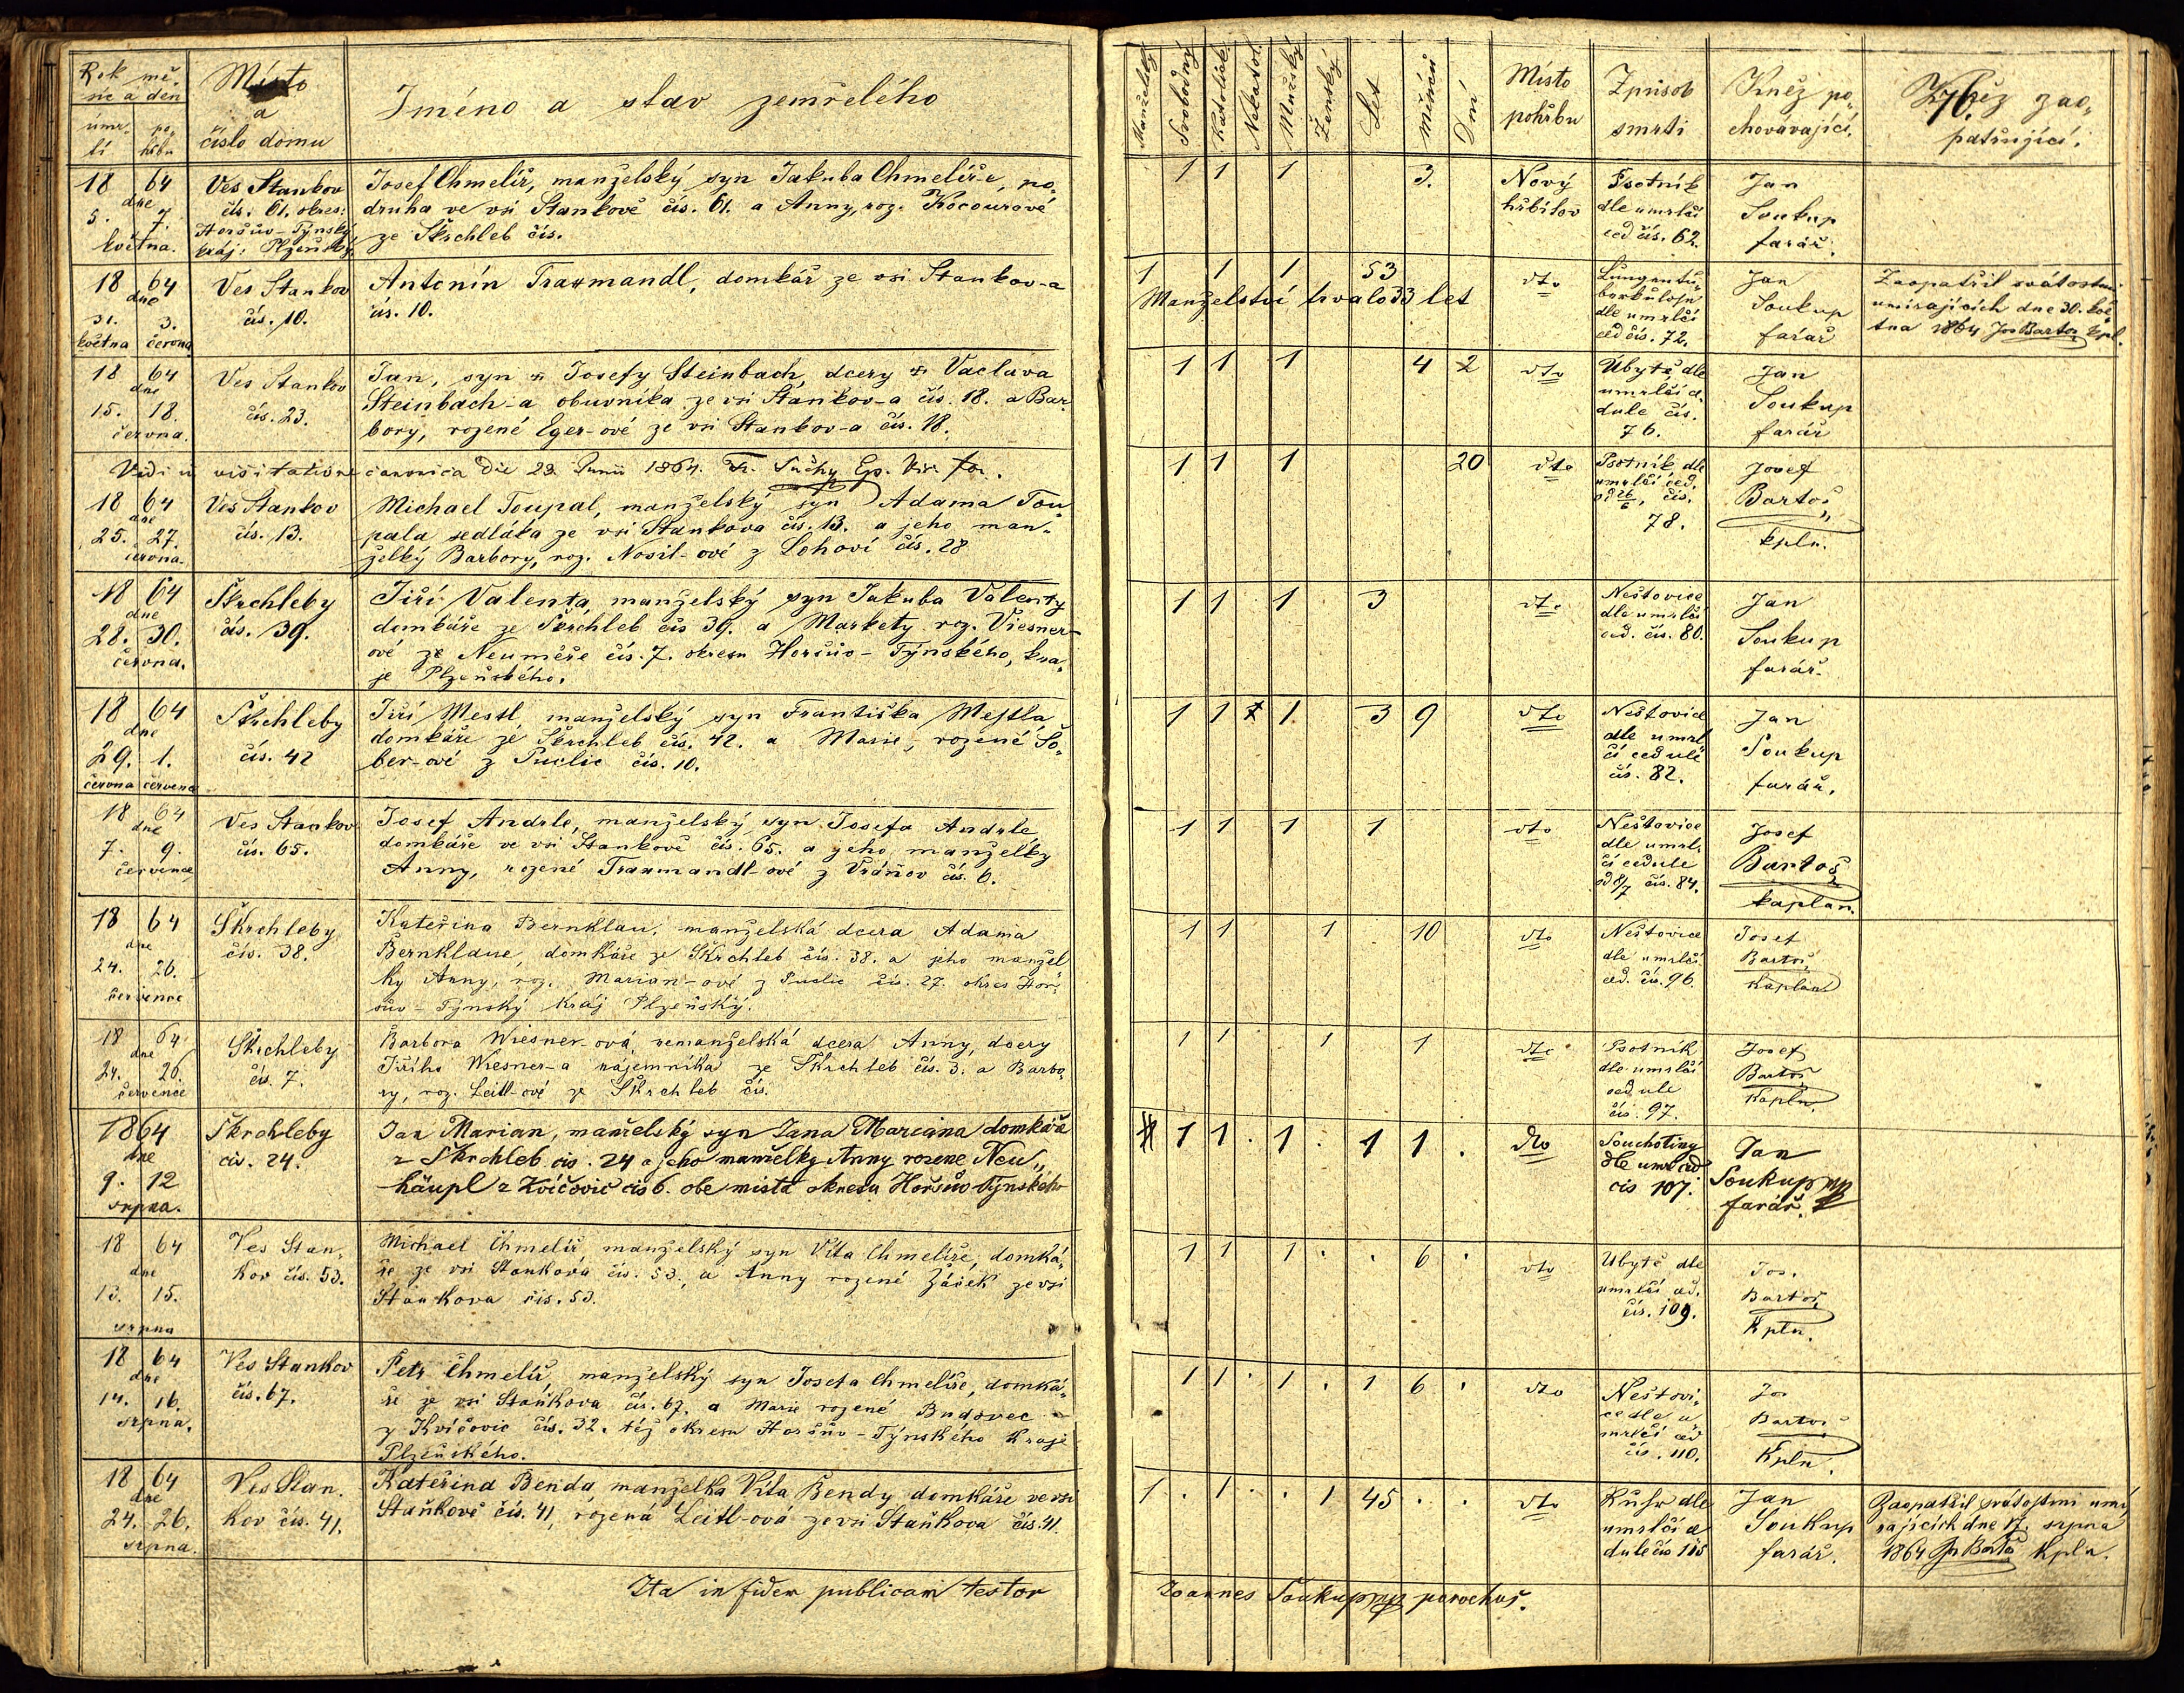 Rok mě-
síc a den
úmr-
tí
po-
hřbu
Místo
a
číslo domu
Jméno a stav zemřelého
Manželský
Svobodný
Katolick.
Nekatol.
Mužský
Ženský
Let
Měsíců
Dní
Místo
pohřbu
Způsob
smrti
Kněz po-
chovávající.
Kněz zao-
patřující.
76.
18 64
dne
5. 7.
května.
Ves Stankov
čís. 61. okres:
Horšův-Týnský
kráj: Plzeňský.
Josef Chmelíř, manželský syn Jakuba Chmelíř-e, po-
druha ve vsi Stankově čís. 61. a Anny, roz. Kocourové
ze Škrchleb čís.
1 1 1 3.
Nový
hřbitov
Psotník
dle umrlčí
ced čís. 62.
Jan
Soukup
farář.
18 64
dne
31. 3.
května června
Ves Stankov
čís. 10.
Antonín Traxmandl, domkář ze vsi Stankov-a
čís. 10.
1 1 1 53
Manželství trvalo 33 let
dto
Lungentu-
berkulose
dle umrlčí
ced čís. 72.
Jan
Soukup
farář
Zaopatřil svátostmi
umírajících dne 30. kvě-
tna 1864 Jos Bartoš kpl.
18 64
dne
15. 18.
června.
Ves Stankov
čís. 23.
Jan, syn Josefy Steinbach, dcery Vaclava
Steinbach-a obuvníka ze vsi Stankov-a čís. 18. a Bar-
bory, rozené Eger-ové ze vsi Stankov-a čís. 18.
1 1 1 4 2
dto
Úbytě dle
umrlčí ce-
dule čís.
76.
Jan
Soukup
farář
Vidi in visitatione canonica die 22 Junii 1864. Fr. Suchy Ep. Vic. for.
18 64
dne
25. 27.
června.
Ves Stankov
čís. 13.
Michael Toupal, manželský syn Adama Tou-
pala sedláka ze vsi Stankova čís. 13. a jeho man-
želky Barbory, roz. Nosil-ové z Lohoví čís. 28
1 1 1 20
dto
Psotník dle
umrlčí ced.
od 26/6, čís.
78.
Josef
Bartoš
kpln.
18 64
dne
28. 30.
června.
Škrchleby
čís. 39.
Jiří Valenta, manželský syn Jakuba Valenty
domkáře ze Škrchleb čís 39. a Markety roz. Viesner-
ové ze Neuměře čís. 7. okresu Horšův-Týnského, kra-
je Plzeňského.
1 1 1 3
dto
Neštovice
dle umrlčí
ced. čís. 80.
Jan
Soukup
farář.
18 64
dne
29. 1.
června července
Škrchleby
čís. 42
Jiří Mestl, manželský syn Františka Mestla,
domkáře ze Škrchleb čís. 42. a Marie, rozené So-
ber-ové z Puclic čís. 10.
1 1 1 3 9
dto
Neštovice
dle umrl-
čí cedule
čís. 82.
Jan
Soukup
farář.
18 64
dne
7. 9.
července
Ves Stankov
čís. 65.
Josef Andrle, manželský syn Josefa Andrle
domkáře ve vsi Stankově čís. 65. a jeho manželky
Anny, rozené Traxmandl-ové z Vránov čís. 6.
1 1 1 1
dto
Neštovice
dle umrl-
čí cedule
od 8/7 čís. 84.
Josef
Bartoš
kaplan.
18 64
dne
24. 26.
července
Škrchleby
čís. 38.
Kateřina Bernklau, manželská dcera Adama
Bernklaue, domkáře ze Škrchleb čís. 38. a jeho manžel-
ky Anny, roz. Marian-ové z Puclic čís. 27. okres Hor-
šův-Týnský Kráj Plzeňský.
1 1 1 10
dto
Neštovice
dle umrlčí
ced. čís. 96.
Josef
Bartoš
Kaplan
18 64
dne
24. 26.
července
Škrchleby
čís. 7.
Barbora Wiesner-ová nemanželská dcera Anny, dcery
Jiřího Wiesner-a nájemníka ze Škrchleb čís. 3. a Barbo-
ry, roz. Leitl-ové ze Škrchleb čís.
1 1 1 1
dto
Psotník
dle umrlčí
cedule
čís. 97.
Josef
Bartoš
Kapln.
1864
dne
9. 12
srpna.
Škrchleby
čís. 24.
Jan Marian, manželský syn Jana Mariana domkáře
z Škrchleb čís. 24 a jeho manželky Anny rozené Neu-
häupl z Kvíčovic čís 6. obe místa okresu Horšův Týnského
1 1 . 1 . 1 1 .
dto
Souchotiny
dle umr ced
čís 107.
Jan
Soukup mp
farář.
18 64
dne
13. 15.
srpna
Ves Stan-
kov čís. 53.
Michael Chmelíř, manželský syn Víta Chmelíře, domká-
ře ze vsi Stankova čís. 53., a Anny rozené Žáček ze vsi
Stankova čís. 53.
1 1 1 . . 6 .
dto
Ubytě dle
umrlčí ced.
čís. 109.
Jos.
Bartoš
Kpln.
18 64
dne
14. 16.
srpna.
Ves Stankov
čís. 67.
Petr Chmelíř, manželský syn Josefa Chmelíře, domká-
ře ze vsi Staňkova čís. 67. a Marie rozené Budovec
z Kvíčovic čís. 32. též okresu Horšův-Týnského Kraje
Plzeňského.
1 1 . 1 . 1 6 .
dto
Neštovi-
ce dle u-
mrlčí ced
čís. 110.
Jos
Bartoš
Kpln.
18 64
dne
24. 26.
srpna.
Ves Stan-
kov čís. 41.
Kateřina Benda, manželka Víta Bendy domkáře ve vsi
Staňkově čís. 41, rozená Leitl-ová ze vsi Staňkova čís. 41.
1 . 1 . . 1 45 . .
dto
Ruhr dle
umrlčí ce-
dule čís 115
Jan
Soukup
farář.
Zaopatřil svátostmi umí-
rajících dne 17. srpna
1864 Jos Bartoš Kpln.
Ita in fidem publicam testor Joannes Soukup mp parochus.